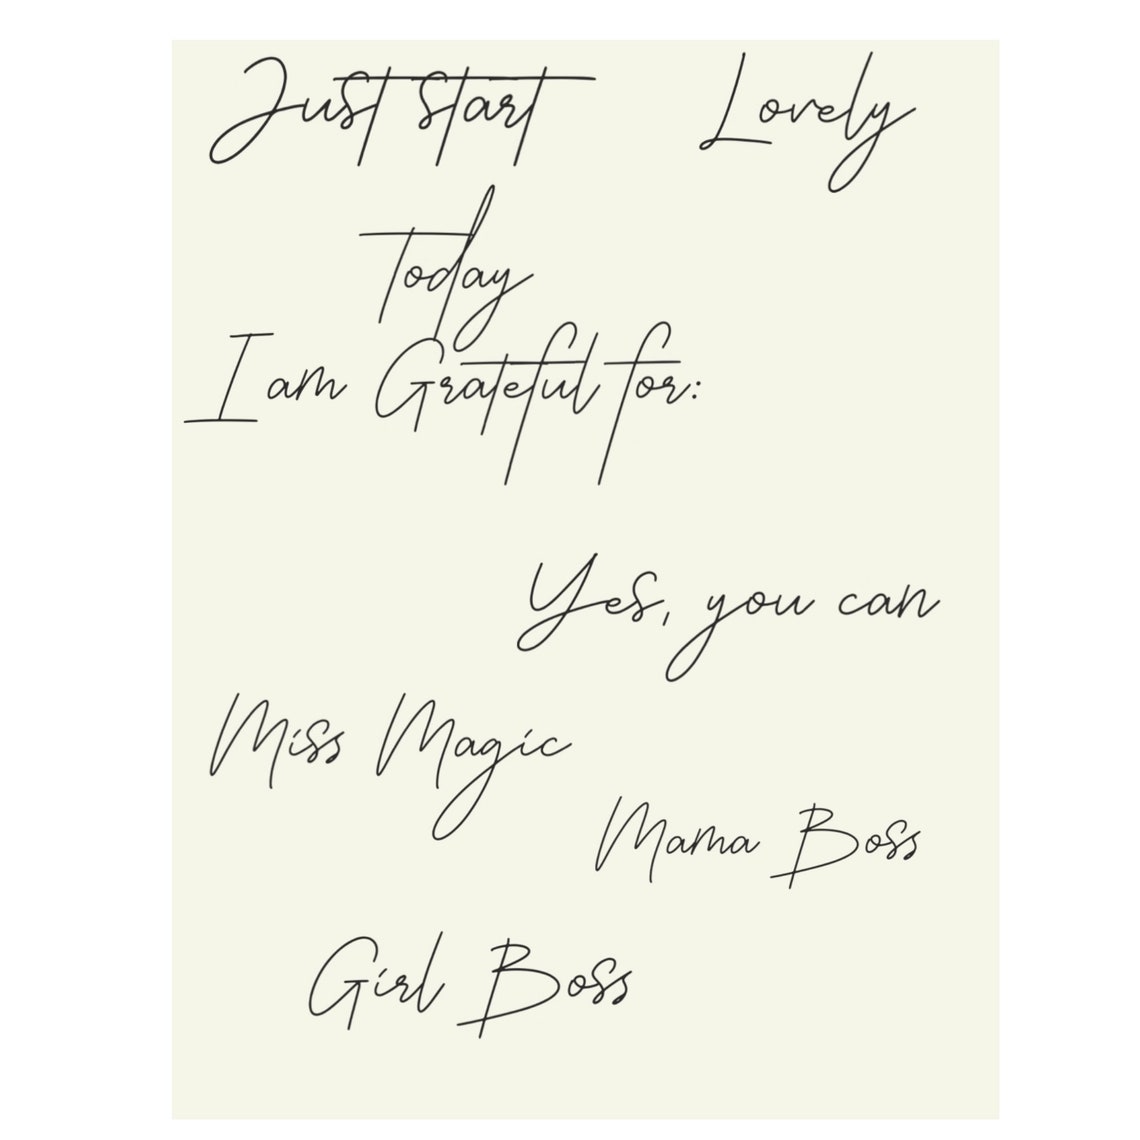 Just start
Lovely
Today
I am Grateful for:
Yes, you can
Miss Magic
Mama Boss
Girl Boss